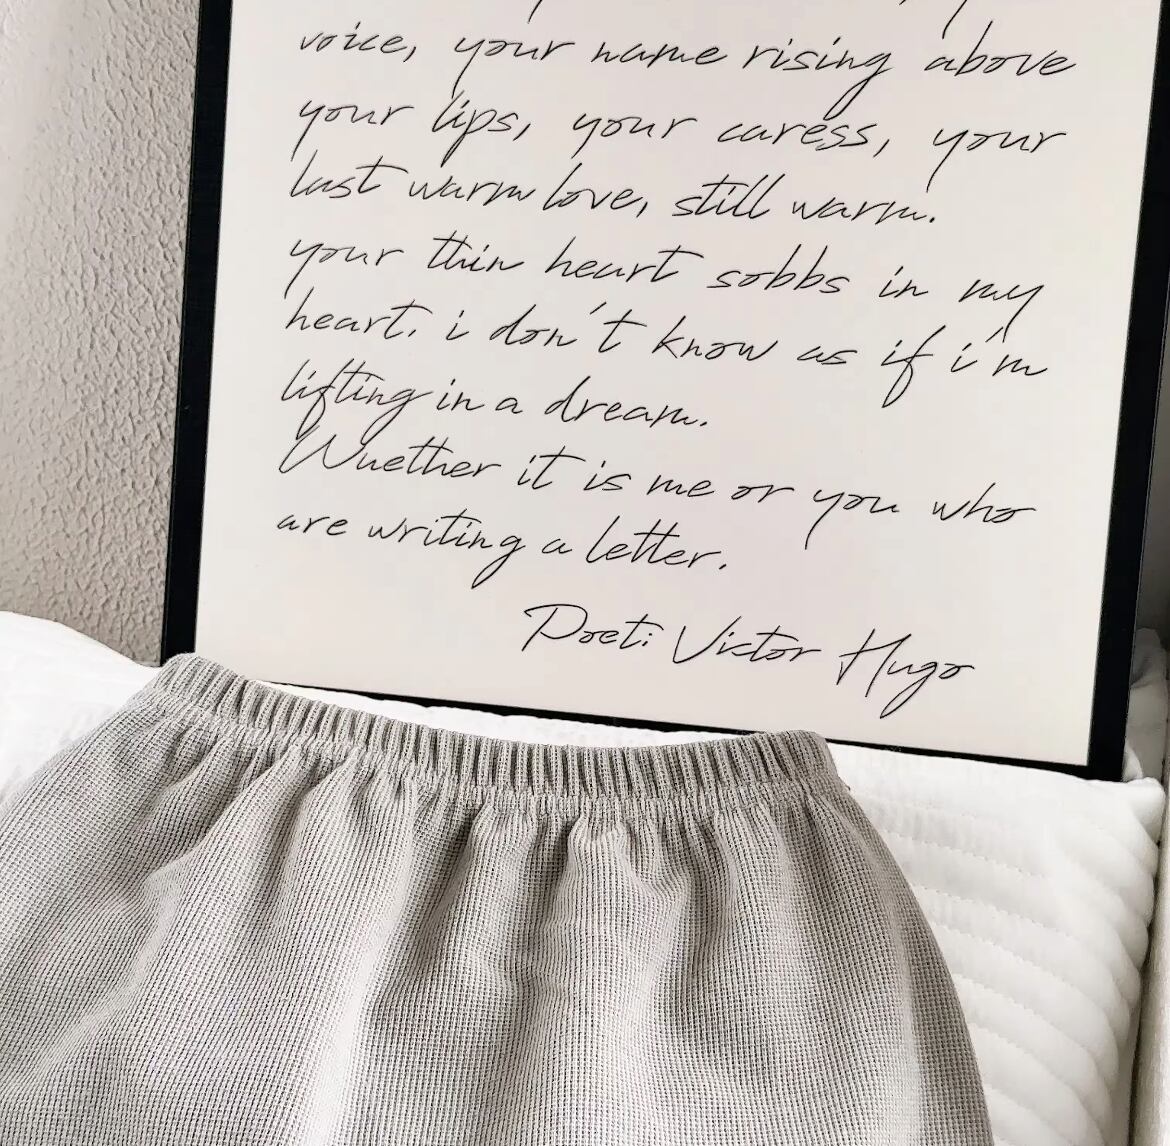 voice, your name rising above
your lips, your caress, your
last warm love, still warm.
your thin heart sobbs in my
heart. i don't know as if i'm
lifting in a dream.
Whether it is me or you who
are writing a letter.
Poet: Victor Hugo